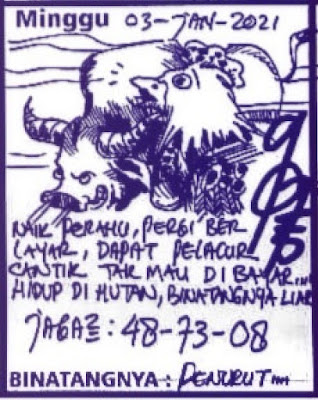 Minggu 03-JAN-2021
NAIK PERAHU, PERGI BER
LAYAR, DAPAT PELACUR
CANTIK TAK MAU DI BAYAR...
HIDUP DI HUTAN, BINATANGNYA LIAR
JAGA2: 48-73-08
BINATANGNYA: PENURUT